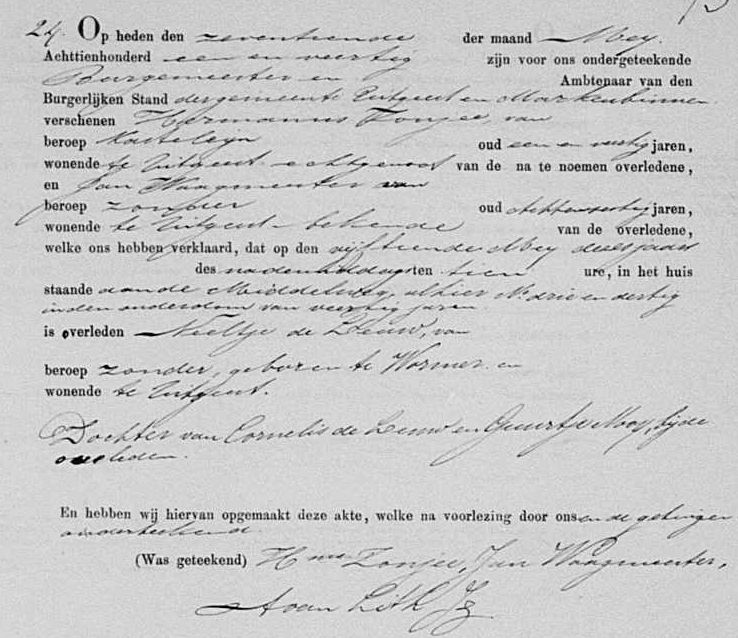 24. Op heden den zeventiende der maand Mey
Achttienhonderd een en veertig zijn voor ons ondergeteekende
Burgemeester en Ambtenaar van den
Burgerlijken Stand der gemeente Uitgeest en Markenbinnen
verschenen Hermanus Zonjee, van
beroep Kastelijn oud een en veertig jaren,
wonende te Uitgeest echtgenoot van de na te noemen overledene,
en Jan Waagmeester van
beroep zonder oud achtenveertig jaren,
wonende te Uitgeest bekende van de overledene,
welke ons hebben verklaard, dat op den vijftiende Mey dezes jaars
des nademiddags ten tien ure, in het huis
staande aan de Middelweg, alhier No. drie en dertig
in den ouderdom van veertig jaren
is overleden Neeltje de Leeuw, van
beroep zonder, geboren te Wormer en
wonende te Uitgeest.
Dochter van Cornelis de Leeuw en Guurtje Mooy, bijde
overleden.
En hebben wij hiervan opgemaakt deze akte, welke na voorlezing door ons en de getuigen
onderteekend
(Was geteekend) Hmus Zonjee, Jan Waagmeester,